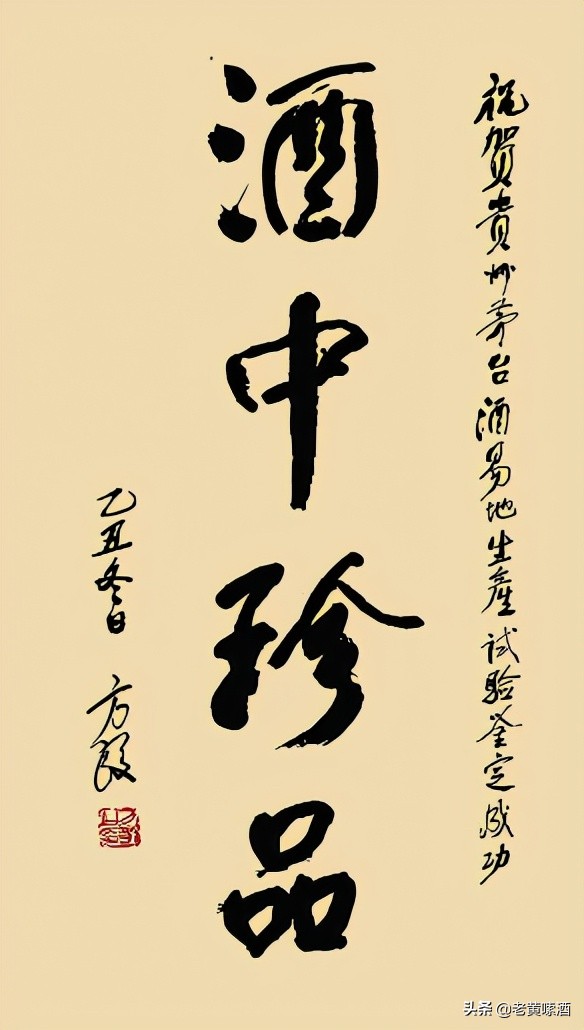 祝賀貴州茅台酒易地生產試驗鉴定成功
酒中珍品
乙丑冬日
方毅
头条 @老黄嗦酒